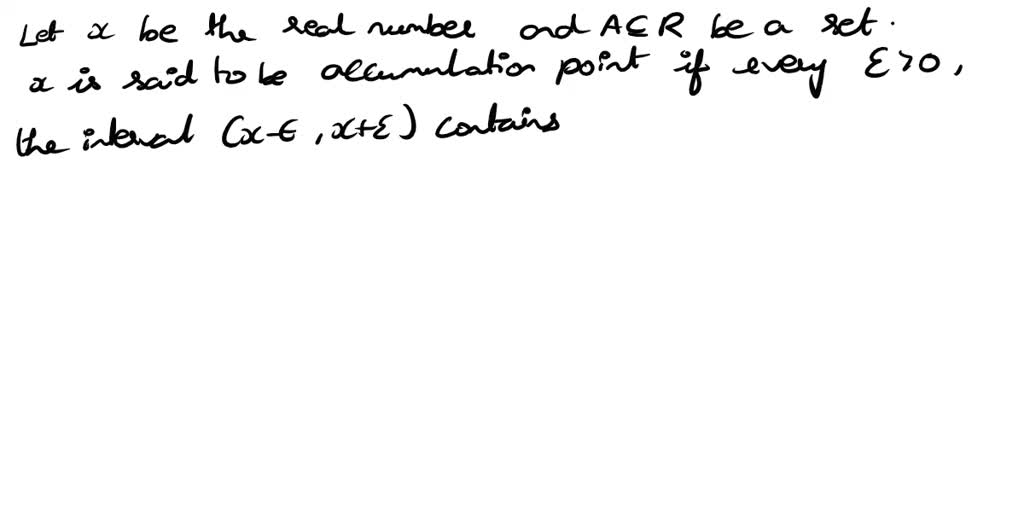 Let x be the real number and A⊆R be a set.
x is said to be accumulation point if every ε>0,
the interval (x-ε, x+ε) contains